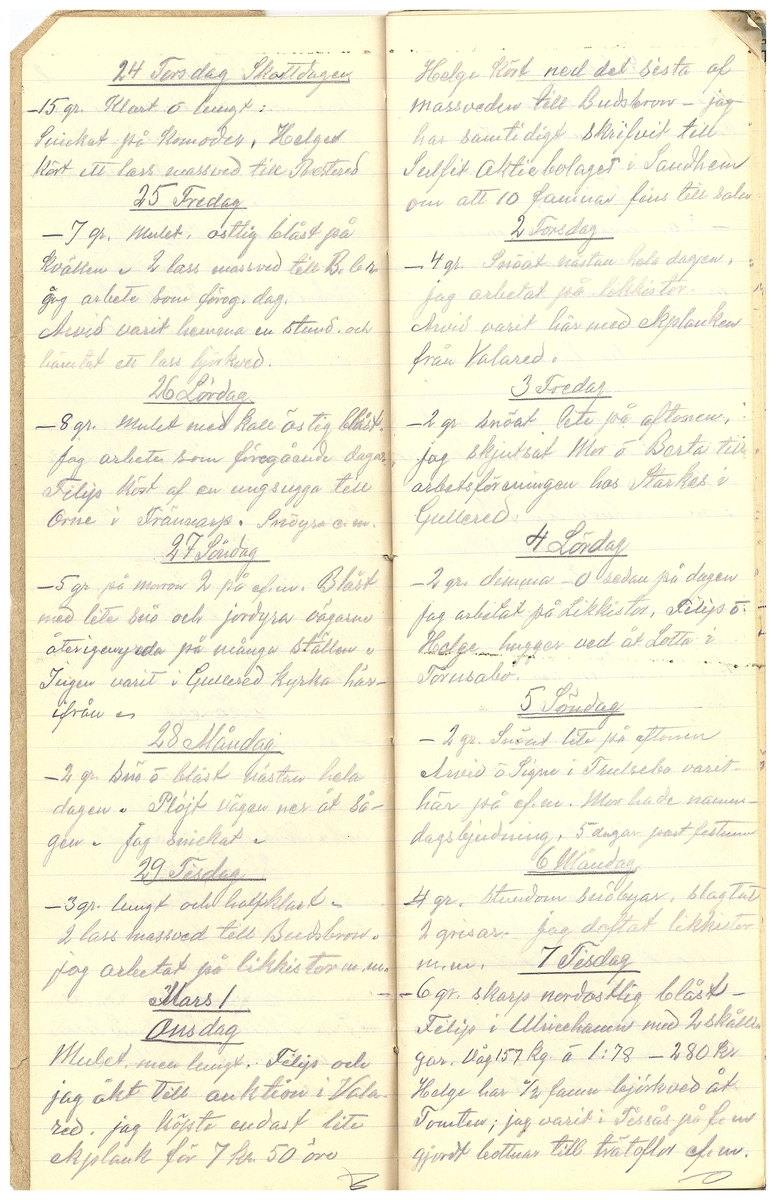 24 Torsdag Skottdagen
-15 gr. Klart o lungt:
Snickat på Komoder, Helge
kört ett lass massved till
25 Fredag
-7 gr. Mulet. ostlig blåst på
kvällen. 2 lass massved till B. b.
jag arbete som föreg. dag.
Arvid varit hemma en stund. och
hämtat ett lass björkved.
26 Lördag
-8 gr. Mulet med kall östig blåst.
jag arbete som föregående dagar,
Filip kört af en ungsugga till
Orne i Trännarp. Snöyra e.m.
27 Söndag
-5 gr på moron 2 på ef.m. Blåst
med lite snö och jordyra vägarne
återigenyrda på många ställen.
Ingen varit i Gullered kyrka här-
ifrån.
28 Måndag
-2 gr. snö o blåst nästan hela
dagen. Plöjt vägen ner åt så-
gen. jag snickat.
29 Tisdag
-3 gr. lungt och halfklart.
2 lass massved till Budsbron.
jag arbetat på likkistor m.m.
Mars 1
Onsdag
Mulet men lungt. Filip och
jag åkt till auktion i Vala-
red. jag köpte endast lite
ekplank för 7 kr 50 öre
Helge kört ned det sista af
massveden till Budsbron - jag
har samtidigt skrifvit till
Sulfit Aktiebolaget i Sandhem
om att 10 famnar fins till salu
2 Torsdag
-4 gr. Snöat nästan hela dagen,
jag arbetat på likkistor.
Arvid varit här med ekplanken
från Valared.
3 Fredag
-2 gr snöat lite på aftonen,
jag skjutsat Mor o Berta till
arbetsföreningen hos Starkes i
Gullered.
4 Lördag
-2 gr. dimma -0 sedan på dagen
jag arbetat på Likkistor, Filip o
Helge hugger ved åt Lotta i
Tornsabo.
5 Söndag
-2 gr. Snöat lite på aftonen
Arvid o Signe i Thulsebo varit
här på ef.m. Mor hade namn-
dagsbjudning, 5 dagar post festum
6 Måndag
-4 gr. stundom snöbyar. slagtat
2 grisar. jag doftat likkistor
m.m. 7 Tisdag
-6 gr. skarp nordostlig blåst -
Filip i Ulricehamn med 2
gar. Våg 157 kg á 1:78 - 280 kr
Helge har ½ famn björkved åt
Tomten; jag varit i Tissås på f.m
gjordt bottnar till trätoflor ef.m.